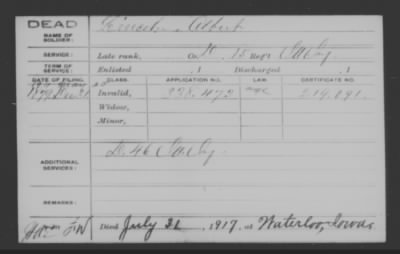 DEAD
NAME OF SOLDIER: Albert
SERVICE: Late rank, Co. 15 Reg't
TERM OF SERVICE: Enlisted , 1 Discharged , 1
DATE OF FILING. CLASS. APPLICATION NO. LAW. CERTIFICATE NO.
1879 Invalid, 328.472 219.091
Widow,
Minor,
ADDITIONAL SERVICES: D. 46
REMARKS:
Died July 31, 1917, at Waterloo, Iowa.